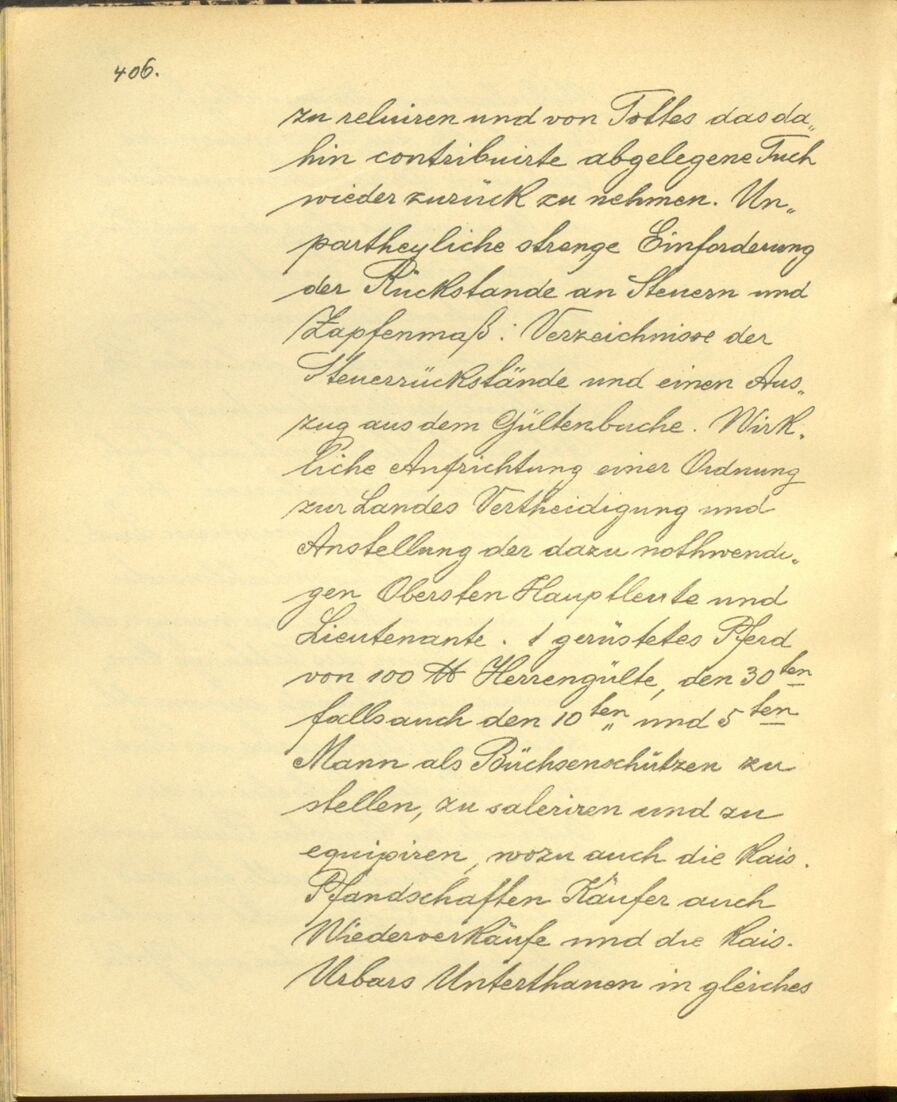 406.
zu reluiren und von Tottes das da„
hin contribuirte abgelegene Tuch
wieder zurück zu nehmen. Un„
partheyliche strenge Einforderung
der Rückstande an Steuern und
Zapfenmaß: Verzeichnisse der
Steuerrückstände und einen Aus„
zug aus dem Gültenbuche. Wirk„
liche Aufrichtung einer Ordnung
zur Landes Vertheidigung und
Anstellung der dazu nothwendi„
gen Obersten Hauptleute und
Lieutenante. 1 gerüstetes Pferd
von 100 ℔ Herrengülte, den 30ten
falls auch den 10ten und 5ten
Mann als Büchsenschützen zu
stellen, zu saleriren und zu
equipiren, wozu auch die Kais.
Pfandschaften Käufer auch
Wiederverkäufe und die Kais.
Urbars Unterthanen in gleiches